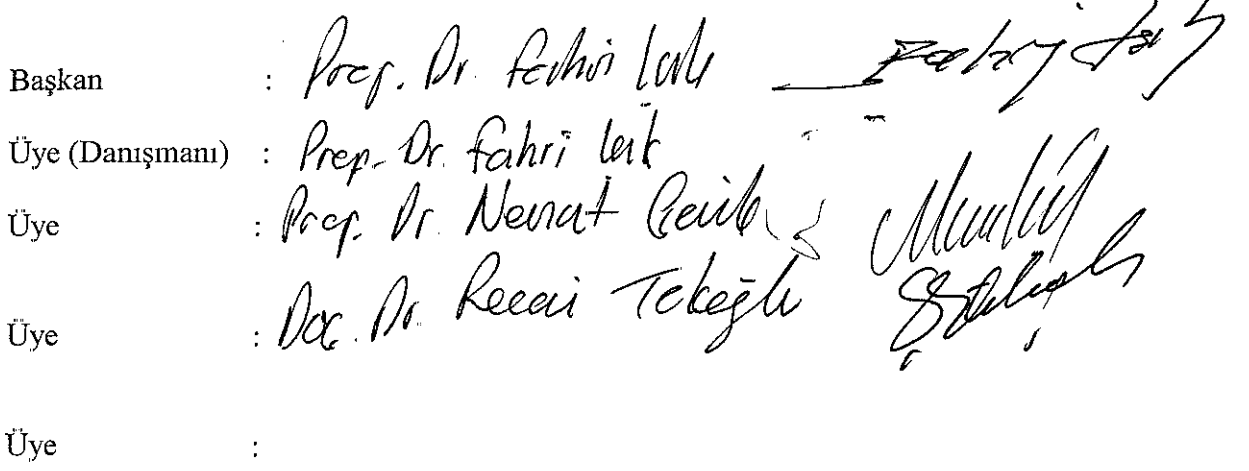 Başkan : Prof. Dr. Fahri Işık
Üye (Danışmanı) : Prof. Dr. Fahri Işık
Üye : Prof. Dr. Nevzat Çevik
Üye : Doç. Dr. Recai Tekoğlu
Üye :